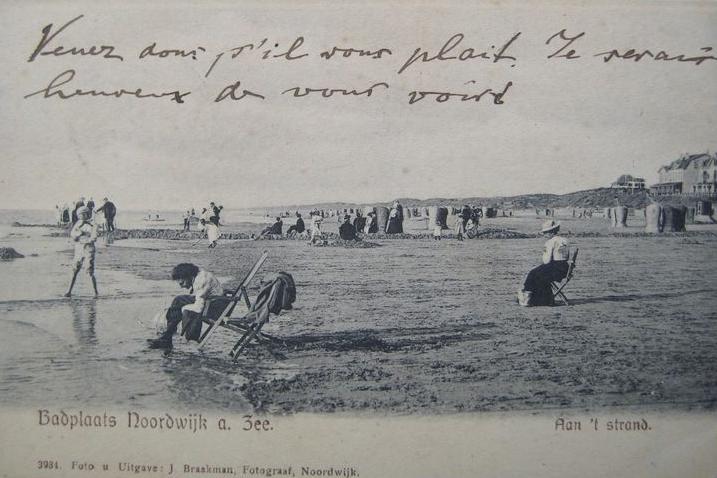 Venez donc s'il vous plait. Je serais
heureux de vous voir!
Badplaats Noordwijk a. Zee.
Aan 't strand.
3934. Foto u Uitgave: J Braakman, Fotograaf, Noordwijk.